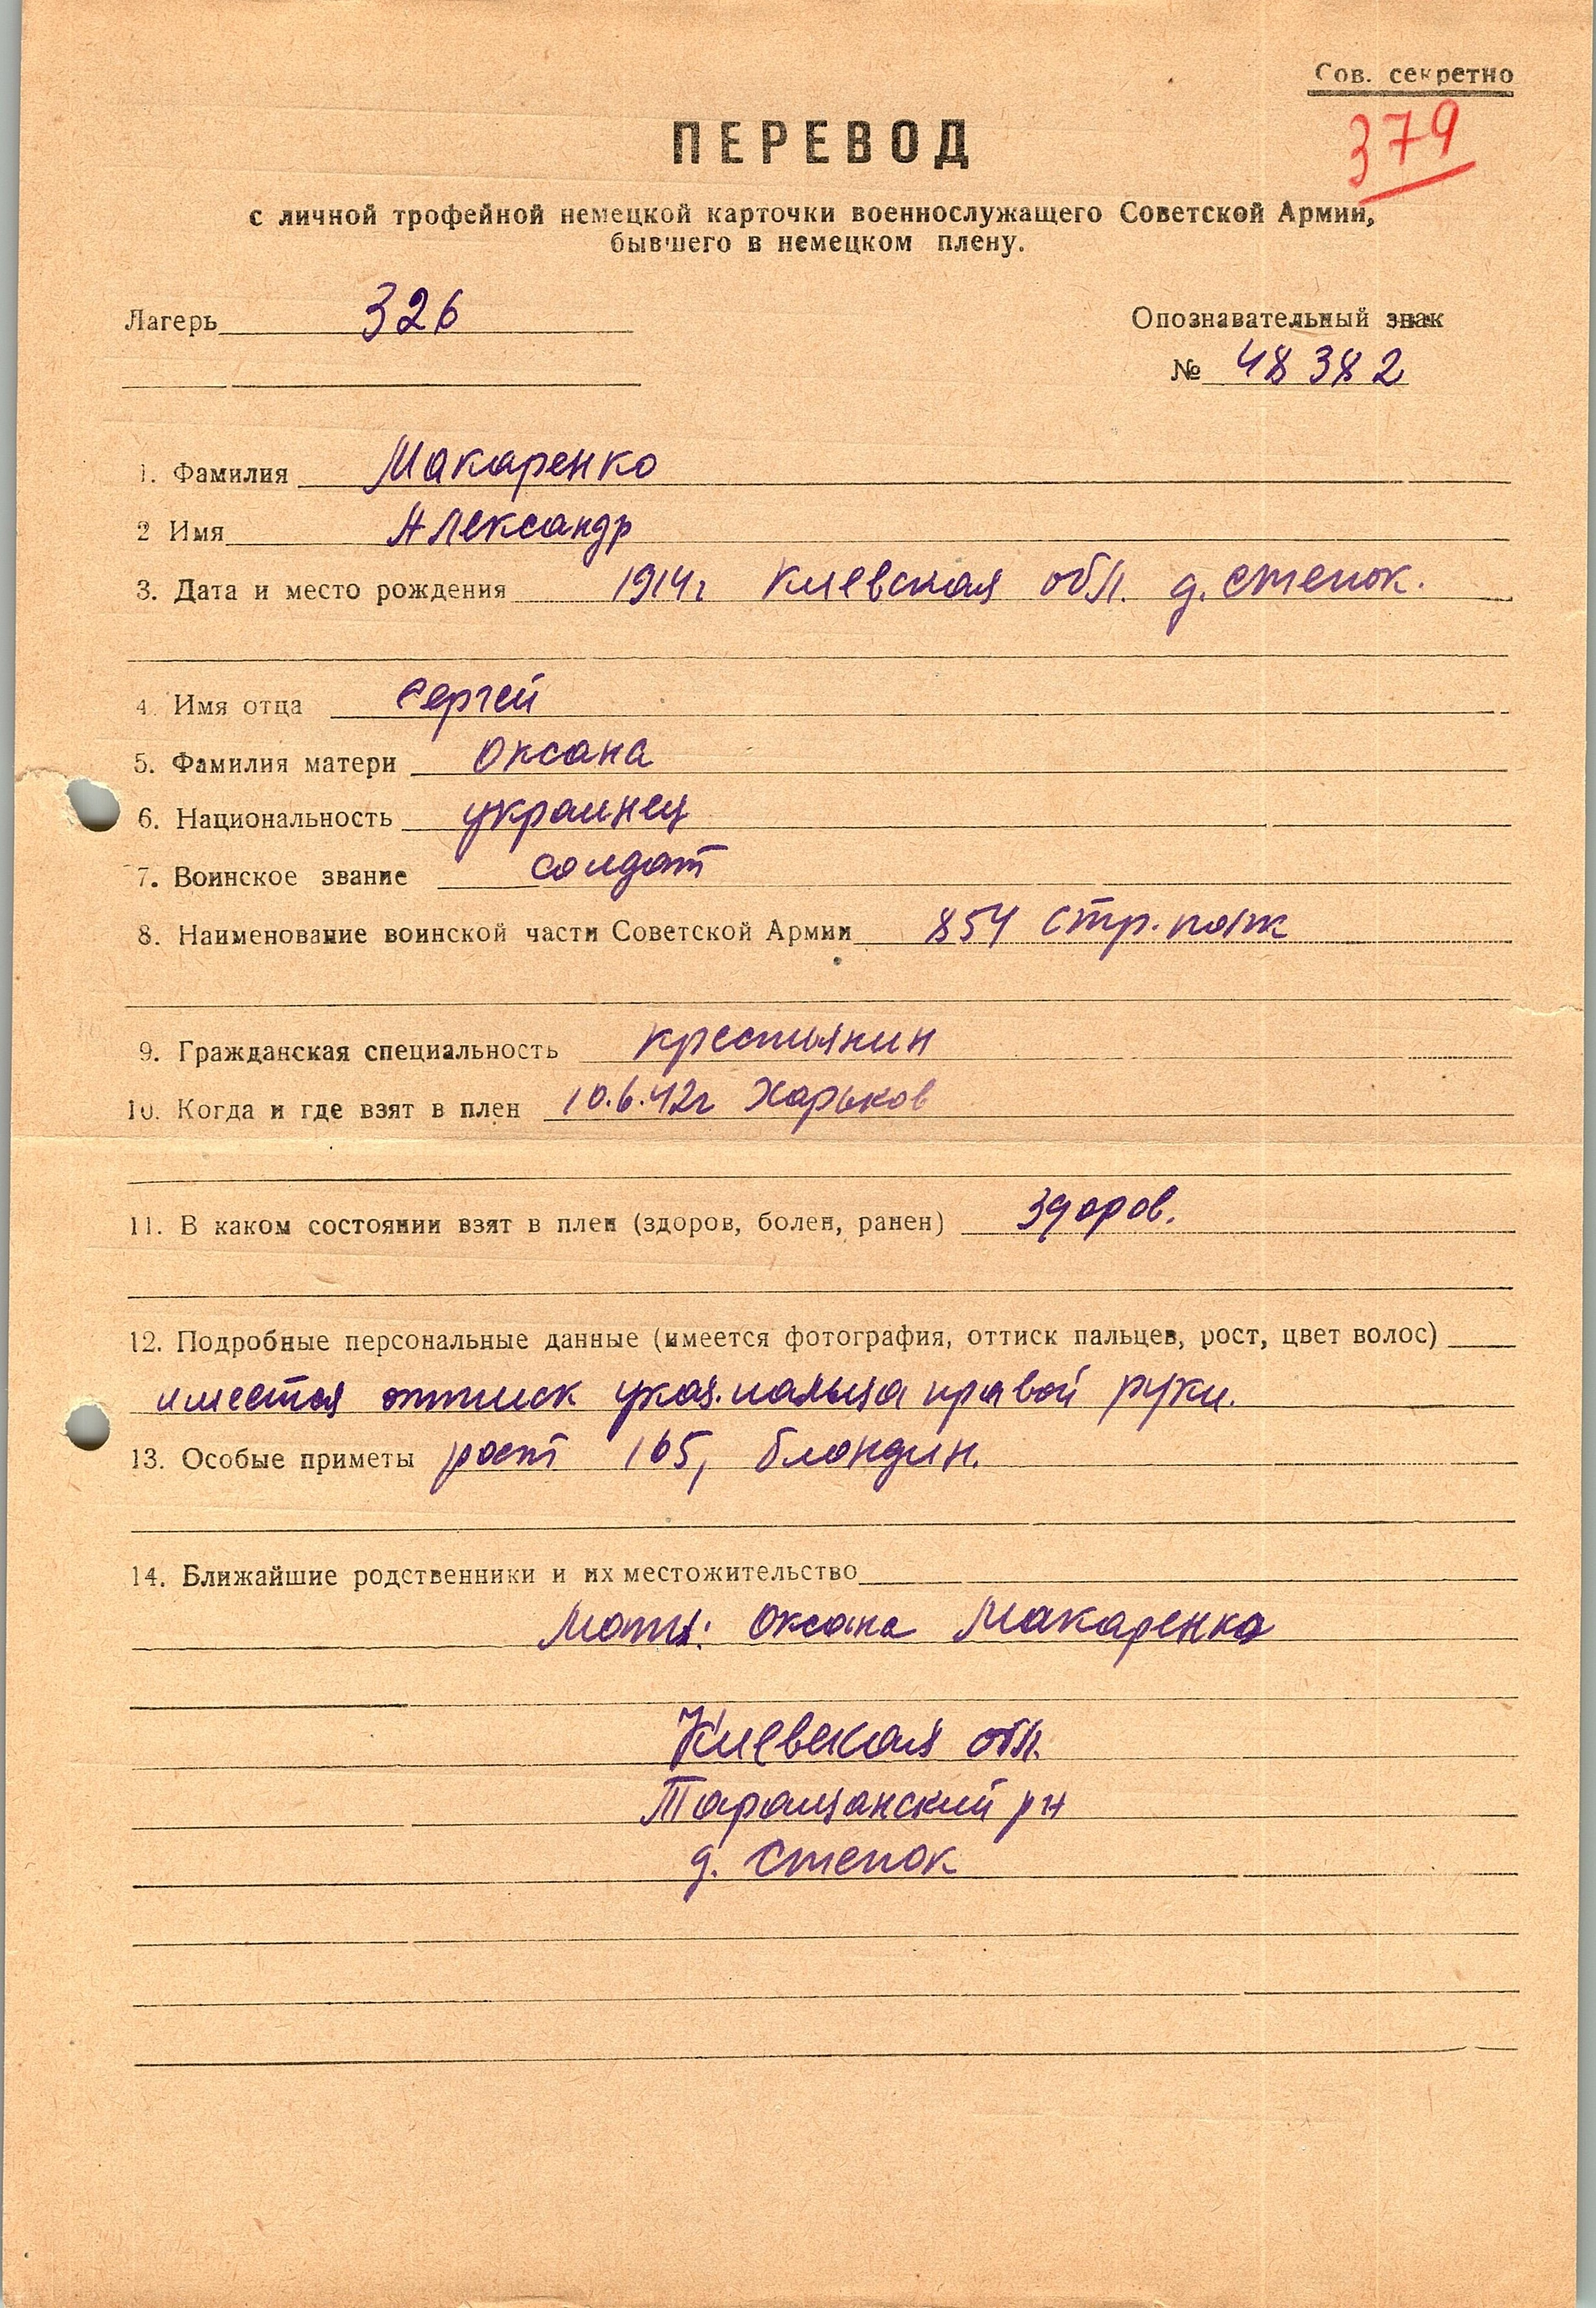 Сов. секретно
379
ПЕРЕВОД
с личной трофейной немецкой карточки военнослужащего Советской Армии,
бывшего в немецком плену.
Лагерь 326
Опознавательный знак
№ 48382
1. Фамилия Макаренко
2 Имя Александр
3. Дата и место рождения 1914г Киевская обл. д. Степок.
4. Имя отца Сергей
5. Фамилия матери Оксана
6. Национальность украинец
7. Воинское звание солдат
8. Наименование воинской части Советской Армии 854 стр. полк
9. Гражданская специальность крестьянин
10. Когда и где взят в плен 10.6.42г Харьков
11. В каком состоянии взят в плен (здоров, болен, ранен) здоров.
12. Подробные персональные данные (имеется фотография, оттиск пальцев, рост, цвет волос)
имеется оттиск указ. пальца правой руки.
13. Особые приметы рост 165, блондин.
14. Ближайшие родственники и их местожительство
Мать: Оксана Макаренко
Киевская обл.
Таращанский рн
д. Степок